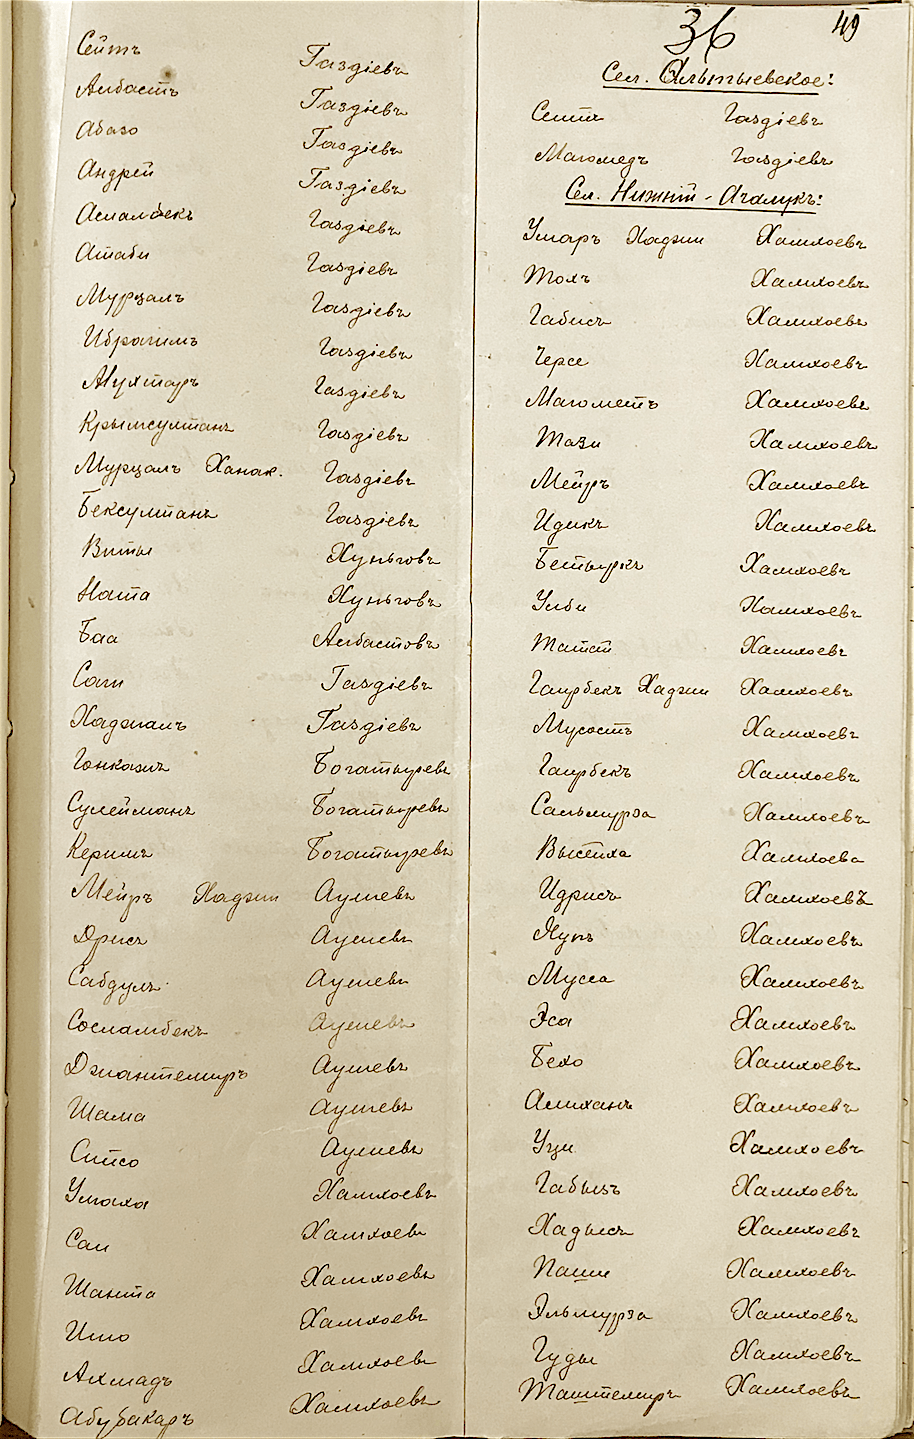 36
49
Сейтъ Газдіевъ
Албастъ Газдіевъ
Абазо Газдіевъ
Андрей Газдіевъ
Асламбекъ Газдіевъ
Атаби Газдіевъ
Мурцалъ Газдіевъ
Ибрагимъ Газдіевъ
Мухтаръ Газдіевъ
Крымсултанъ Газдіевъ
Мурцалъ Ханак. Газдіевъ
Бексултанъ Газдіевъ
Виты Хуньговъ
Ната Хуньговъ
Баа Албастовъ
Саги Газдіевъ
Хаджалъ Газдіевъ
Гонкажъ Богатыревъ
Сулейманъ Богатыревъ
Керимъ Богатыревъ
Мейръ Хаджи Аушевъ
Дрисъ Аушевъ
Сабдулъ Аушевъ
Сосламбекъ Аушевъ
Джантемиръ Аушевъ
Шама Аушевъ
Сипсо Аушевъ
Умаха Хамхоевъ
Саи Хамхоевъ
Шанта Хамхоевъ
Ино Хамхоевъ
Ахмадъ Хамхоевъ
Абубакаръ Хамхоевъ
Сел. Альтыевское:
Сейтъ Газдіевъ
Магомедъ Газдіевъ
Сел. Нижній-Ачалукъ:
Умаръ Хаджи Хамхоевъ
Тохъ Хамхоевъ
Габисъ Хамхоевъ
Черсе Хамхоевъ
Магометъ Хамхоевъ
Тази Хамхоевъ
Мейръ Хамхоевъ
Идикъ Хамхоевъ
Бетыркъ Хамхоевъ
Улби Хамхоевъ
Татай Хамхоевъ
Гаирбекъ Хаджи Хамхоевъ
Мусостъ Хамхоевъ
Гаирбекъ Хамхоевъ
Сальмурза Хамхоевъ
Высетха Хамхоева
Идрисъ Хамхоевъ
Якупъ Хамхоевъ
Мусса Хамхоевъ
Эса Хамхоевъ
Бехо Хамхоевъ
Алиханъ Хамхоевъ
Уци Хамхоевъ
Габызъ Хамхоевъ
Хадысъ Хамхоевъ
Паши Хамхоевъ
Эльмурза Хамхоевъ
Гуды Хамхоевъ
Таштемиръ Хамхоевъ